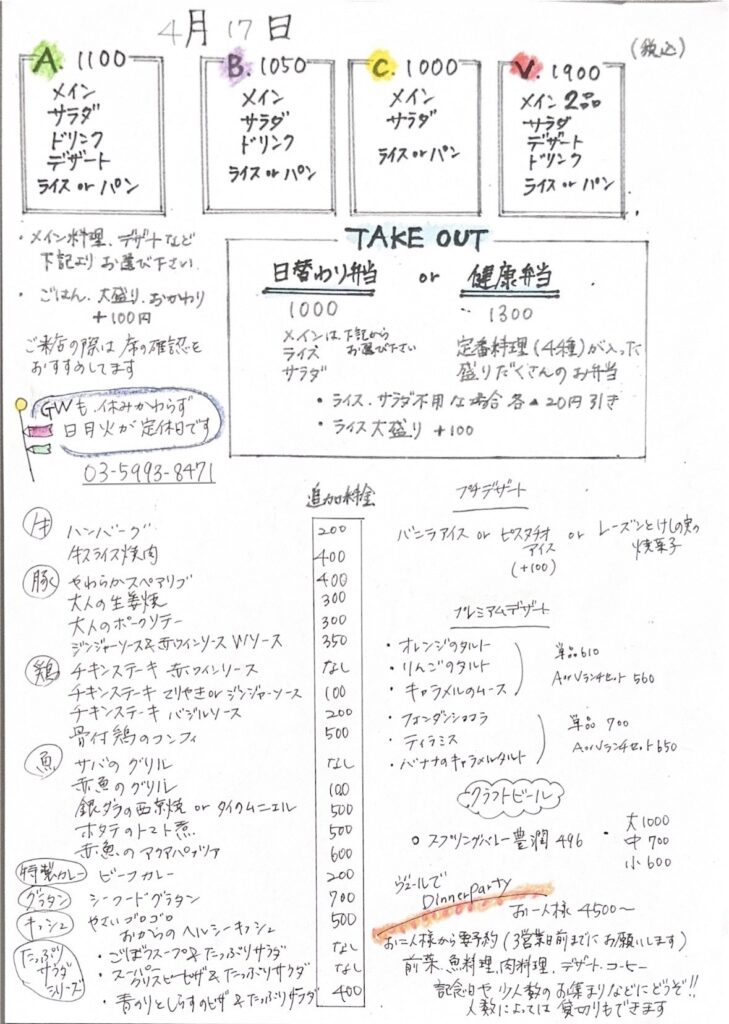 4月17日
(税込)
A. 1100
メイン
サラダ
ドリンク
デザート
ライス or パン
B. 1050
メイン
サラダ
ドリンク
ライス or パン
C. 1000
メイン
サラダ
ライス or パン
V. 1900
メイン 2品
サラダ
デザート
ドリンク
ライス or パン
・メイン料理、デザートなど
下記よりお選び下さい
・ごはん、大盛り、おかわり
+100円
ご来店の際は席の確認を
おすすめしてます
GWも、休みかわらず
日月火が定休日です
03-5993-8471
TAKE OUT
日替わり弁当 or 健康弁当
1000
メインは下記から
お選び下さい
ライス
サラダ
1300
定番料理(4種)が入った
盛りだくさんのお弁当
・ライス、サラダ不用な場合 各▲20円引き
・ライス大盛り +100
追加料金
牛 ハンバーグ 200
牛スライス焼肉 400
豚 やわらかスペアリブ 400
大人の生姜焼 300
大人のポークソテー 300
ジンジャーソース&赤ワインソース Wソース 350
鶏 チキンステーキ 赤ワインソース なし
チキンステーキ てりやき or ジンジャーソース 100
チキンステーキ バジルソース 200
骨付鶏のコンフィ 500
魚 サバのグリル なし
赤魚のグリル 100
銀ダラの西京焼 or タイのムニエル 500
ホタテのトマト煮 500
赤魚のアクアパッツァ 600
特製カレー ビーフカレー 200
グラタン シーフードグラタン 700
キッシュ やさいゴロゴロ
おからのヘルシーキッシュ 500
たっぷりサラダシリーズ
・ごぼうスープ&たっぷりサラダ なし
・スーパークリスピーピザ&たっぷりサラダ なし
・青のりとしらすのピザ&たっぷりサラダ 400
プチデザート
バニラアイス or ピスタチオアイス (+100) or レーズンとけしの実の焼菓子
プレミアムデザート
・オレンジのタルト
・りんごのタルト
・キャラメルのムース
単品 610
A or Vランチセット 560
・フォンダンショコラ
・ティラミス
・バナナのキャラメルタルト
単品 700
A or Vランチセット 650
クラフトビール
○ スプリングバレー豊潤 496
・大 1000
中 700
小 600
ヴェールで
Dinner party
お一人様 4500〜
お二人様から要予約(3営業日前までにお願いします)
前菜、魚料理、肉料理、デザート、コーヒー
記念日や少人数のお集まりなどにどうぞ!!
人数によっては貸切りもできます